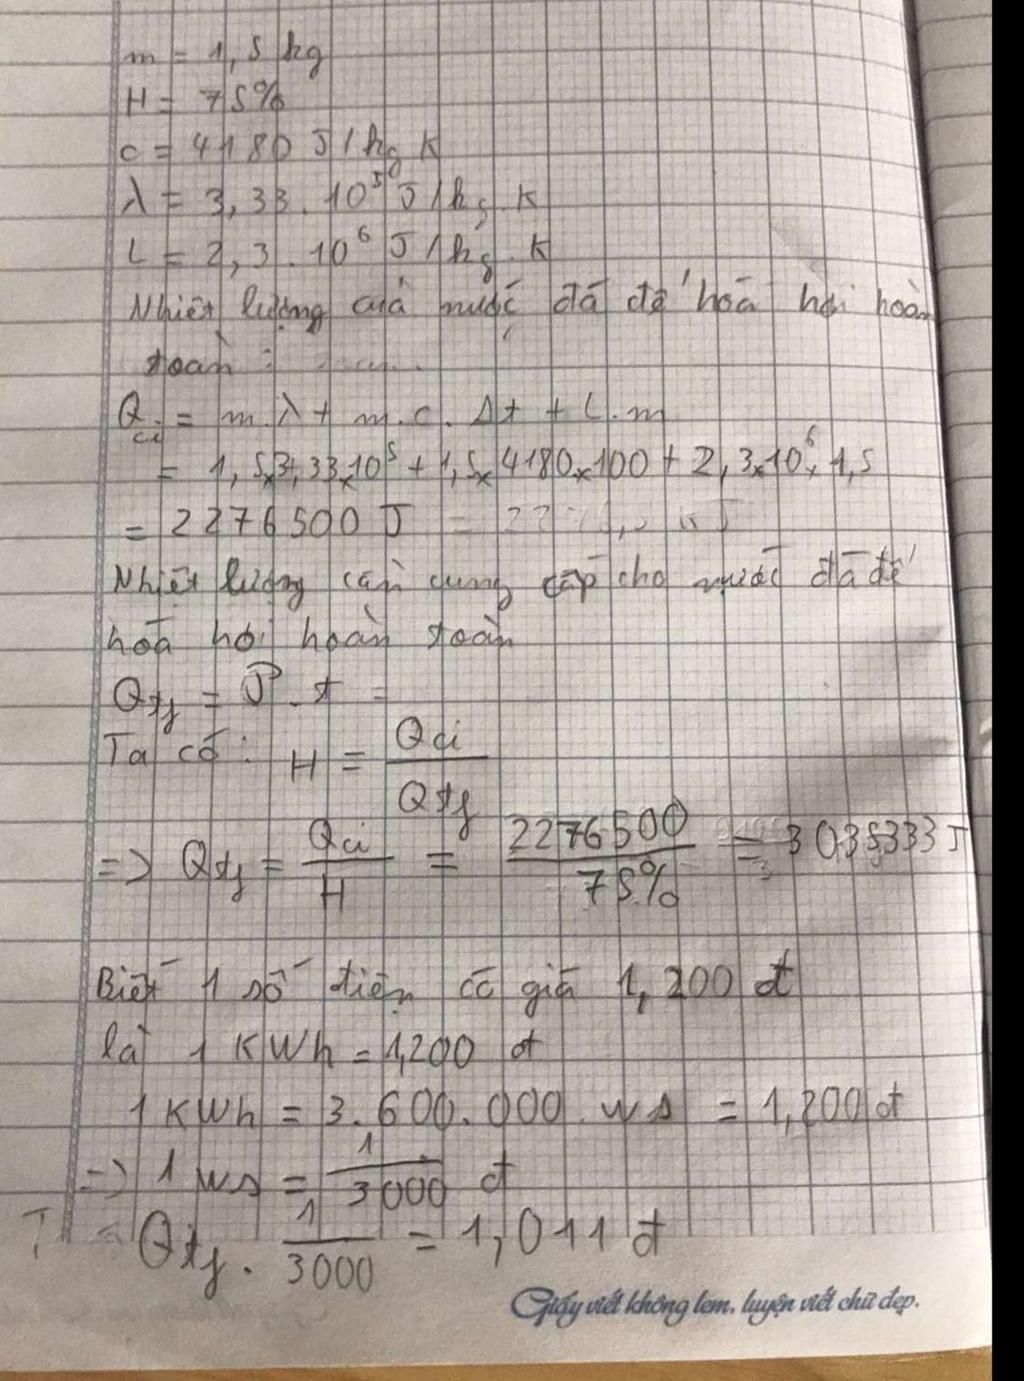 m = 1,5 kg
H = 75%
c = 4180 J/kg K
λ = 3,33.10⁵ J/kg.K
L = 2,3.10⁶ J/kg.K
Nhiệt lượng của nước đá để hoá hơi hoàn
toàn:
Qci = m.λ + m.c.Δt + L.m
= 1,5x3,33x10⁵ + 1,5x4180x100 + 2,3x10⁶x1,5
= 2276500 J =
Nhiệt lượng cần cung cấp cho nước đá để
hoá hơi hoàn toàn
Qtf = P.t =
Ta có: H = Qci / Qtf
=> Qtf = Qci / H = 2276500 / 75% = 3035333 J
Biết 1 số điện có giá 1,200 đ
là 1 KWh = 1,200 đ
1 KWh = 3.600.000 ws = 1,200 đ
=> 1 ws = 1 / 3000 đ
T Qtf . 1 / 3000 = 1,011 đ
Giấy viết không lem, luyện viết chữ đẹp.